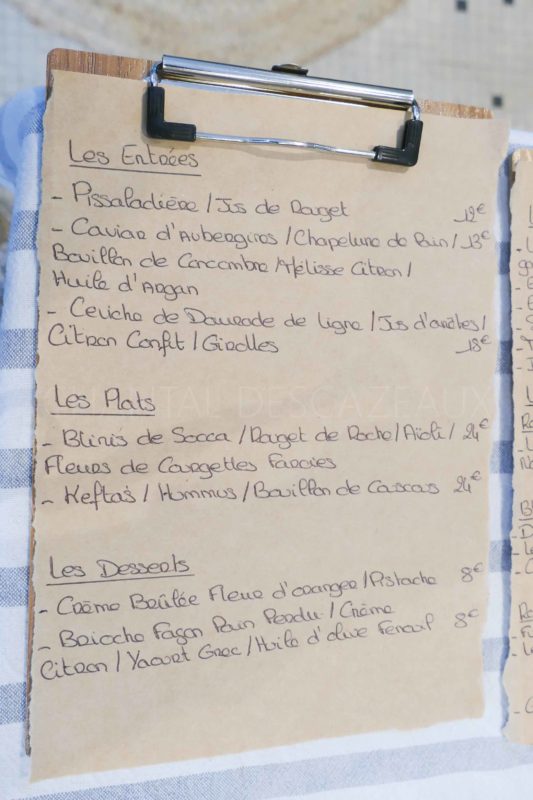 Les Entrées
- Pissaladière / Jus de Rouget 12€
- Caviar d'Aubergines / Chapelure de Pain / 13€
Bouillon de Concombre / Mélisse Citron /
Huile d'Argan
- Ceviche de Daurade de ligne / Jus d'arêtes /
Citron Confit / Girolles 18€
Les Plats
- Blinis de Socca / Rouget de Roche / Aïoli / 24€
Fleurs de Courgettes Farcies
- Keftas / Hummus / Bouillon de Couscous 24€
Les Desserts
- Crème Brûlée Fleur d'oranger / Pistache 8€
- Brioche Façon Pain Perdu / Crème
Citron / Yaourt Grec / Huile d'olive 8€